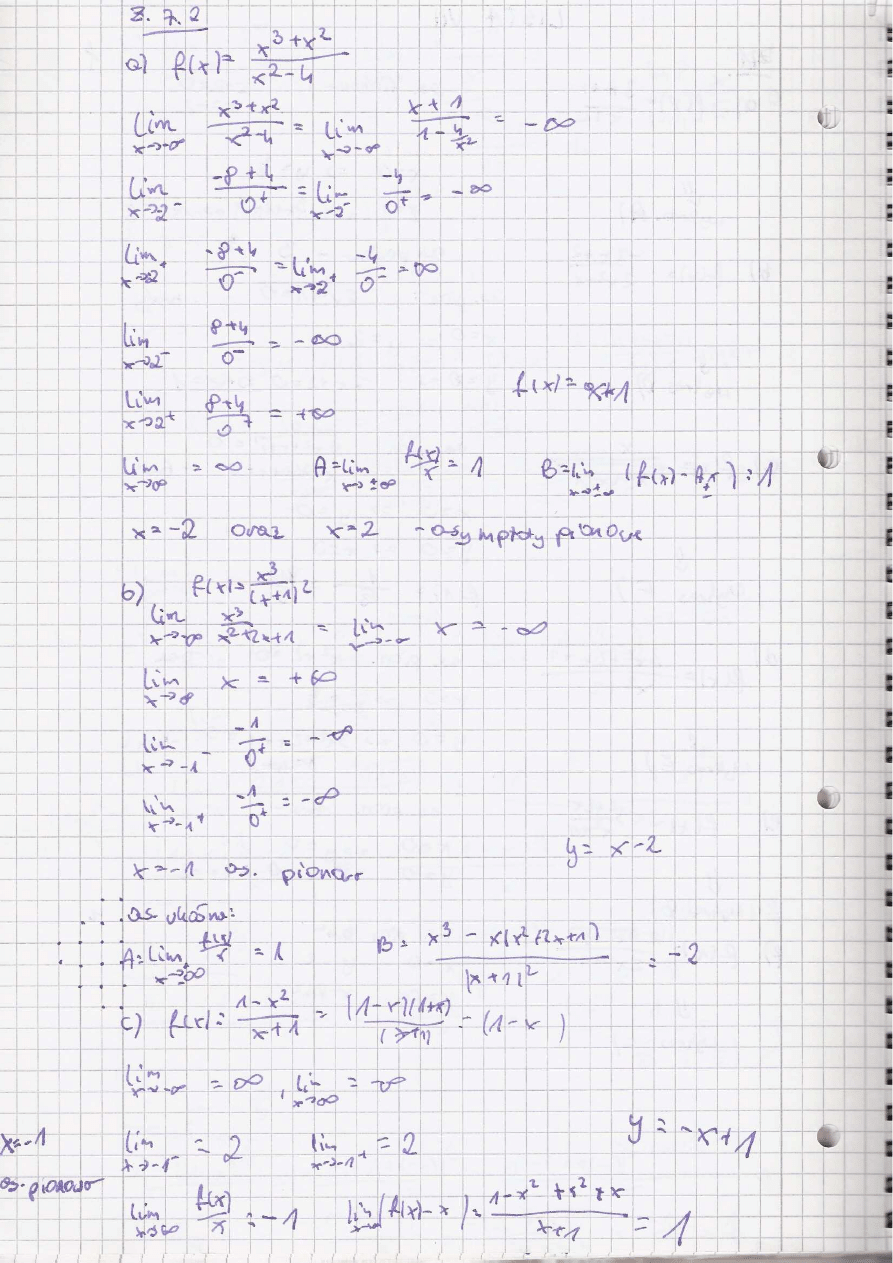 Z. 7.2
a) f(x) = (x³+x²)/(x²-4)
lim x→-∞ (x³+x²)/(x²-4) = lim x→-∞ (x+1)/(1-4/x²) = -∞
lim x→2⁻ (-8+4)/0⁺ = lim x→2⁻ -4/0⁺ = -∞
lim x→2⁺ (-8+4)/0⁻ = lim x→2⁺ -4/0⁻ = ∞
lim x→2⁻ (8+4)/0⁻ = -∞
f(x) = x+1
lim x→2⁺ (8+4)/0⁺ = +∞
lim x→∞ = ∞ A = lim x→±∞ f(x)/x = 1 B = lim x→±∞ (f(x) - Ax) = 1
x = -2 oraz x = 2 - asymptoty pionowe
b) f(x) = x³/(x+1)²
lim x→-∞ x³/(x²+2x+1) = lim x→-∞ x = -∞
lim x→∞ x = +∞
lim x→-1⁻ -1/0⁺ = -∞
lim x→-1⁺ -1/0⁺ = -∞
y = x-2
x = -1 as. pionowa
as ukośne:
A = lim x→±∞ f(x)/x = 1 B = (x³ - x(x²+2x+1))/(x+1)² = -2
c) f(x) = (1-x²)/(x+1) = (1-x)(1+x)/(x+1) = (1-x)
lim x→-∞ = ∞, lim x→∞ = -∞
x = -1 lim x→-1⁻ = 2 lim x→-1⁺ = 2 y = -x+1
as. pionowa
lim x→∞ f(x)/x = -1 lim x→∞ (f(x)-x) = (1-x²+x²+x)/(x+1) = 1